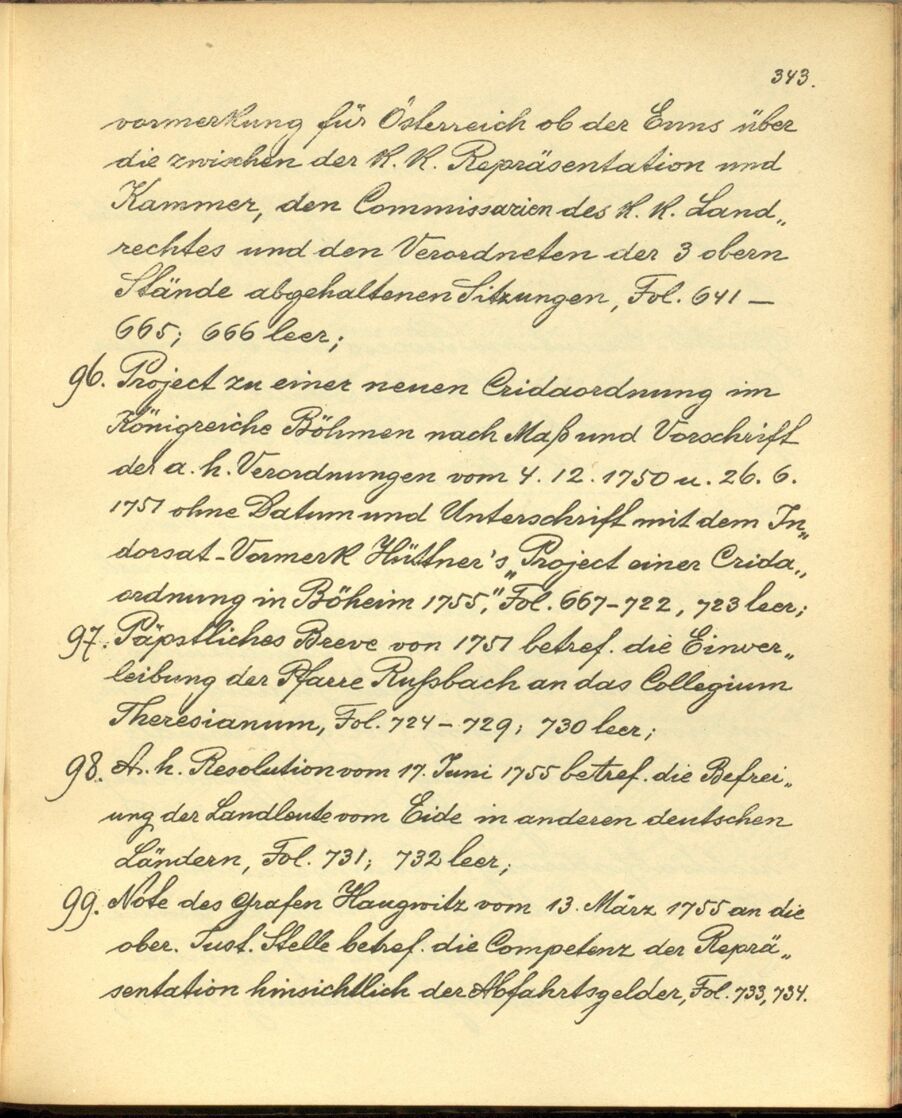 343.
vormerkung für Österreich ob der Enns über
die zwischen der K. K. Repräsentation und
Kammer, den Commissarien des K. K. Land„
rechtes und den Verordneten der 3 obern
Stände abgehaltenen Sitzungen, Fol. 641 —
665; 666 leer;
96. Project zu einer neuen Cridaordnung im
Königreiche Böhmen nach Maß und Vorschrift
der a. h. Verordnungen vom 4. 12. 1750 u. 26. 6.
1751 ohne Datum und Unterschrift mit dem In„
dorsat-Vormerk Hüttner's „Project einer Crida„
ordnung in Böheim 1755," Fol. 667-722, 723 leer;
97. Päpstliches Breve von 1751 betref. die Einver„
leibung der Pfarre Rußbach an das Collegium
Theresianum, Fol. 724 - 729; 730 leer;
98. A. h. Resolution vom 17. Juni 1755 betref. die Befrei„
ung der Landleute vom Eide in anderen deutschen
Ländern, Fol. 731; 732 leer;
99. Note des Grafen Haugwitz vom 13. März 1755 an die
ober. Just. Stelle betref. die Competenz der Reprä„
sentation hinsichtlich der Abfahrtsgelder, Fol. 733, 734.